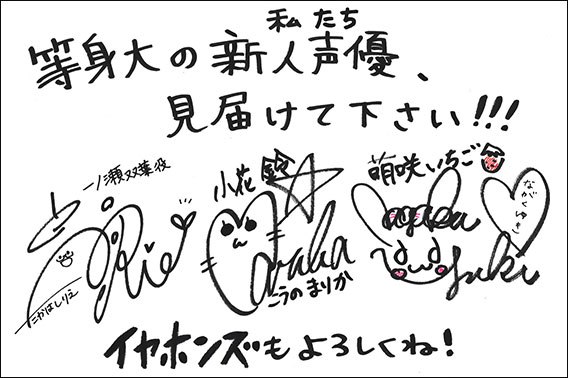 私たち
等身大の新人声優、
見届けて下さい!!!
一ノ瀬双葉役
小花鈴
萌咲いちご
Rie
たかはしりえ
こうのまりか
ながくゆき
Yuki
イヤホンズもよろしくね!